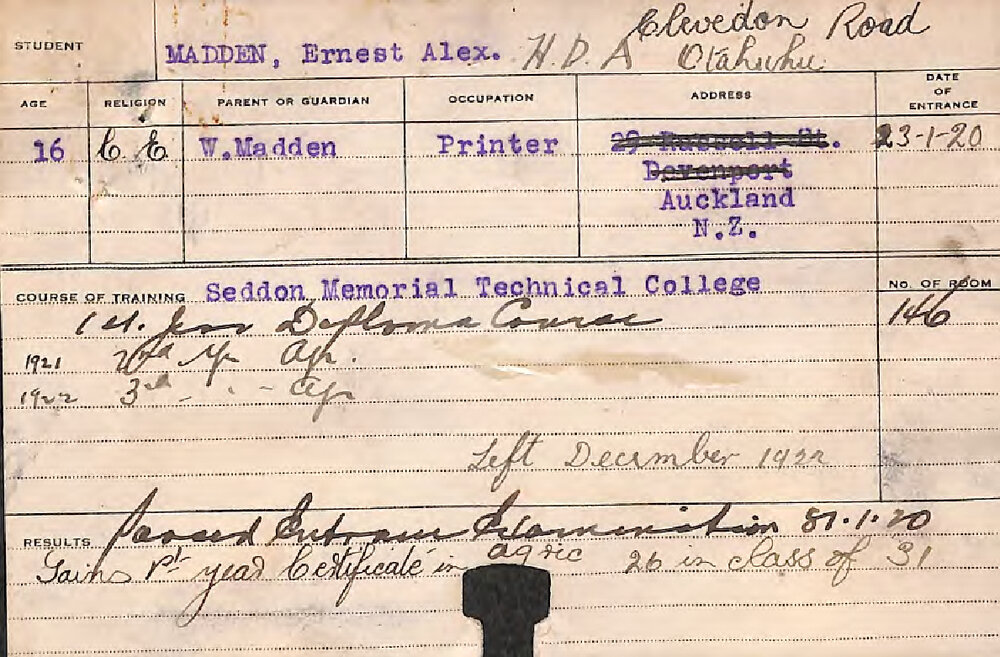 Clevedon Road
STUDENT MADDEN, Ernest Alex. H.D.A Otahuhu
AGE RELIGION PARENT OR GUARDIAN OCCUPATION ADDRESS DATE OF ENTRANCE
16 C E W.Madden Printer St. 23-1-20
Devenport
Auckland
N.Z.
COURSE OF TRAINING Seddon Memorial Technical College No. OF ROOM
1st. Year Diploma Course 146
1921 2nd Yr Agr.
1922 3rd - " - Agr
Left December 1922
RESULTS Passed Entrance Examination 1.20
Gains 1st year Certificate in agric 26 in class of 31